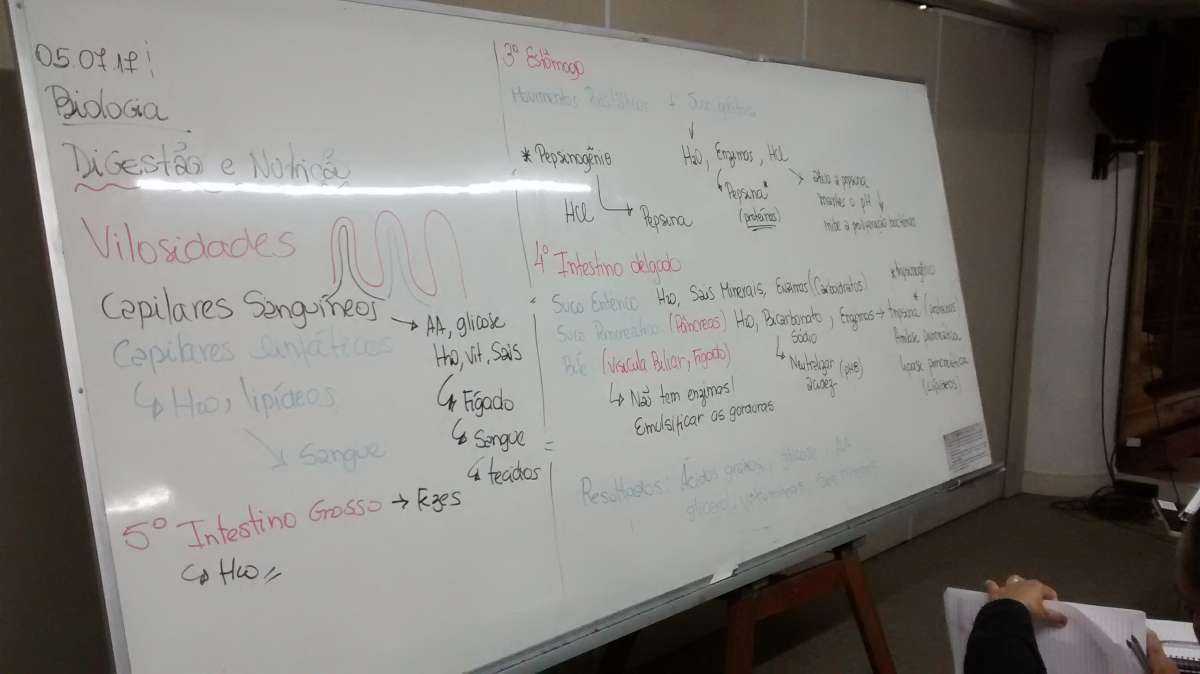 05.07.17
Biologia
Digestão e Nutrição
Vilosidades
Capilares Sanguíneos → AA, glicose
H2O, Vit, Sais
↳ Fígado
↳ Sangue =
↳ tecidos
Capilares Linfáticos
↳ H2O, lipídeos
↘ Sangue
5º Intestino Grosso → Fezes
↳ H2O //
3º Estômago
Movimentos Peristálticos + Suco gástrico
↓
H2O, Enzimas, HCl
↳ Pepsina*
(proteínas)
↘ ativa a pepsina
mantém o pH ↓
inibe a proliferação bacteriana
* Pepsinogênio
HCl ↳ Pepsina
4º Intestino delgado
Suco Entérico H2O, Sais Minerais, Enzimas (Carboidratos)
Suco Pancreático (Pâncreas) H2O, Bicarbonato, Enzimas →
Sódio
↳ Neutralizar (pH8)
acidez
* tripsinogênio
tripsina* (proteínas)
Amilase pancreática
Lipase pancreática
(Lipídeos)
Bile (Vesícula Biliar, Fígado)
↳ Não tem enzimas!
Emulsificar as gorduras
Resultados: Ácidos graxos, glicose, AA
glicerol, vitaminas, Sais minerais